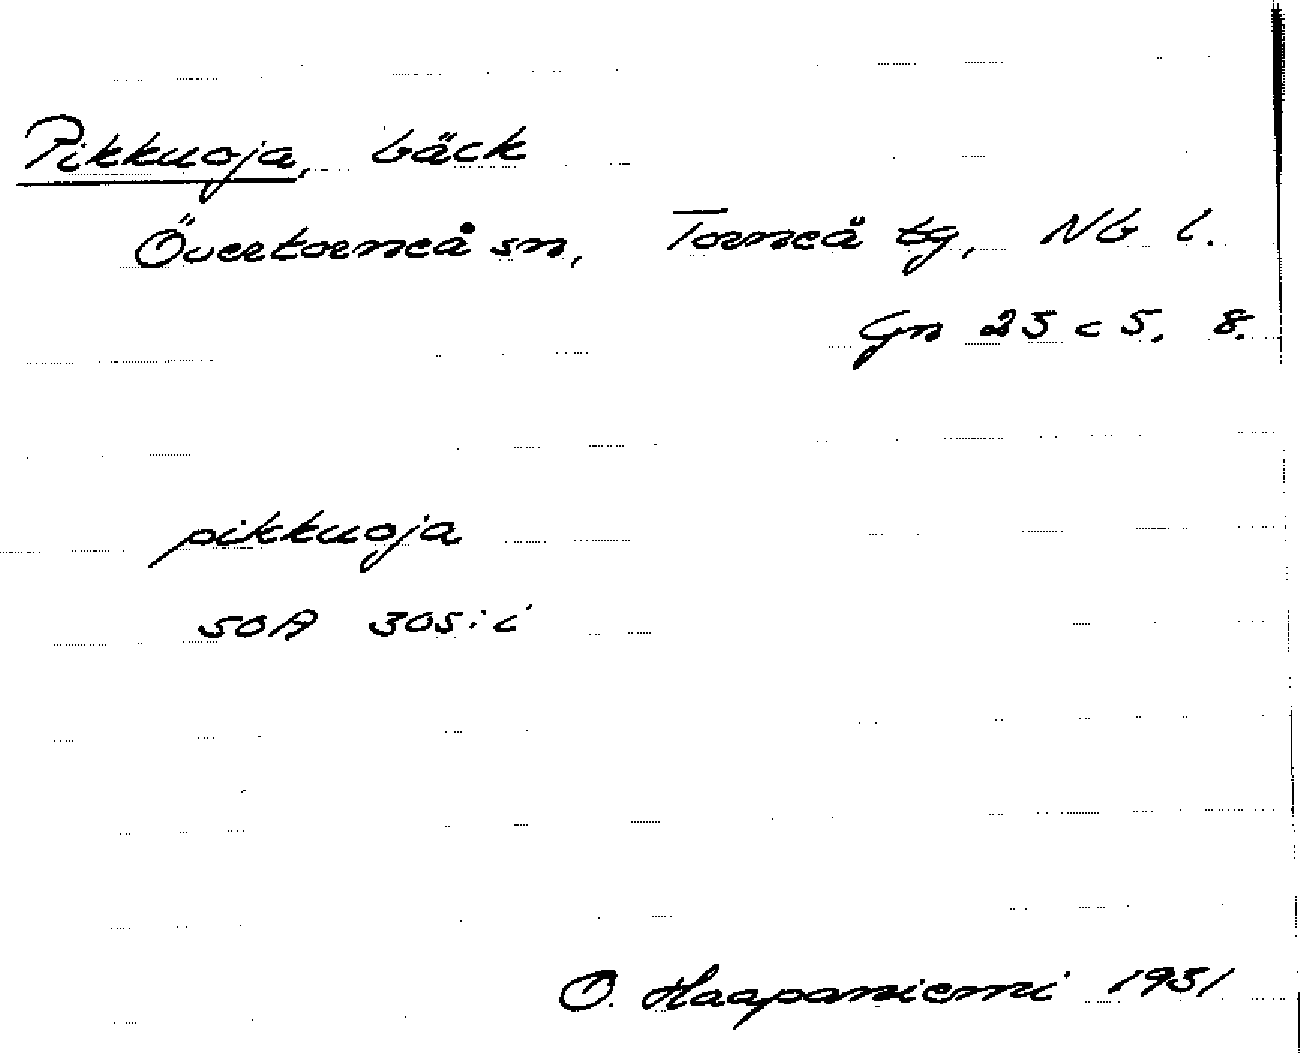 Pikkuoja, bäck
Övertorneå sn, Torneå tg, Nb l.
Gn 25 c 5. 8.
pikkuoja
SOA 305:i
O. Haapaniemi 1931